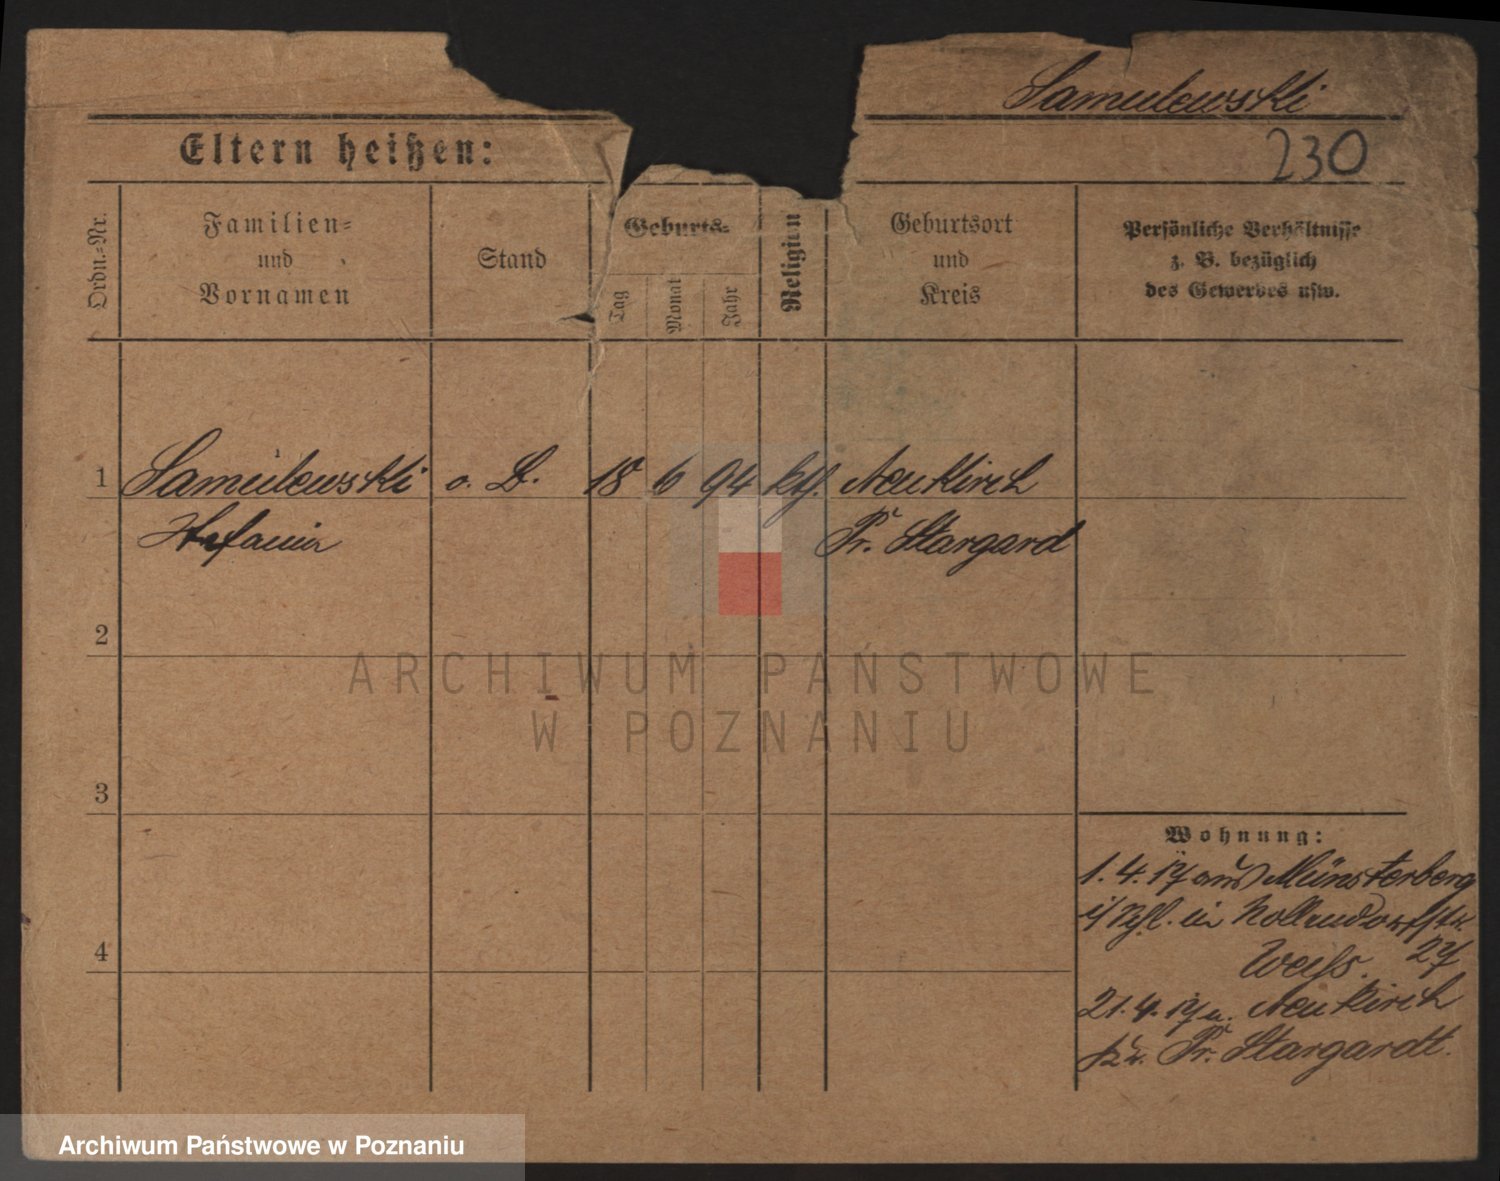 Samulewski
230
Eltern heißen:
Ordn.-Nr.
Familien-
und
Vornamen
Stand
Geburts-
Tag
Monat
Jahr
Religion
Geburtsort
und
Kreis
Persönliche Verhältnisse
z. B. bezüglich
des Gewerbes usw.
1 Samulewski o. B. 18 6 94 kth. Neukirch
Stefania Pr. Stargard
2
ARCHIWUM PAŃSTWOWE
W POZNANIU
3
Wohnung:
1. 4. 17 aus Münsterberg
i/ Schl. in Nollendorfstr.
4
Weiss. 27
21. 4. 17 n. Neukirch
Kr. Pr. Stargardt.
Archiwum Państwowe w Poznaniu